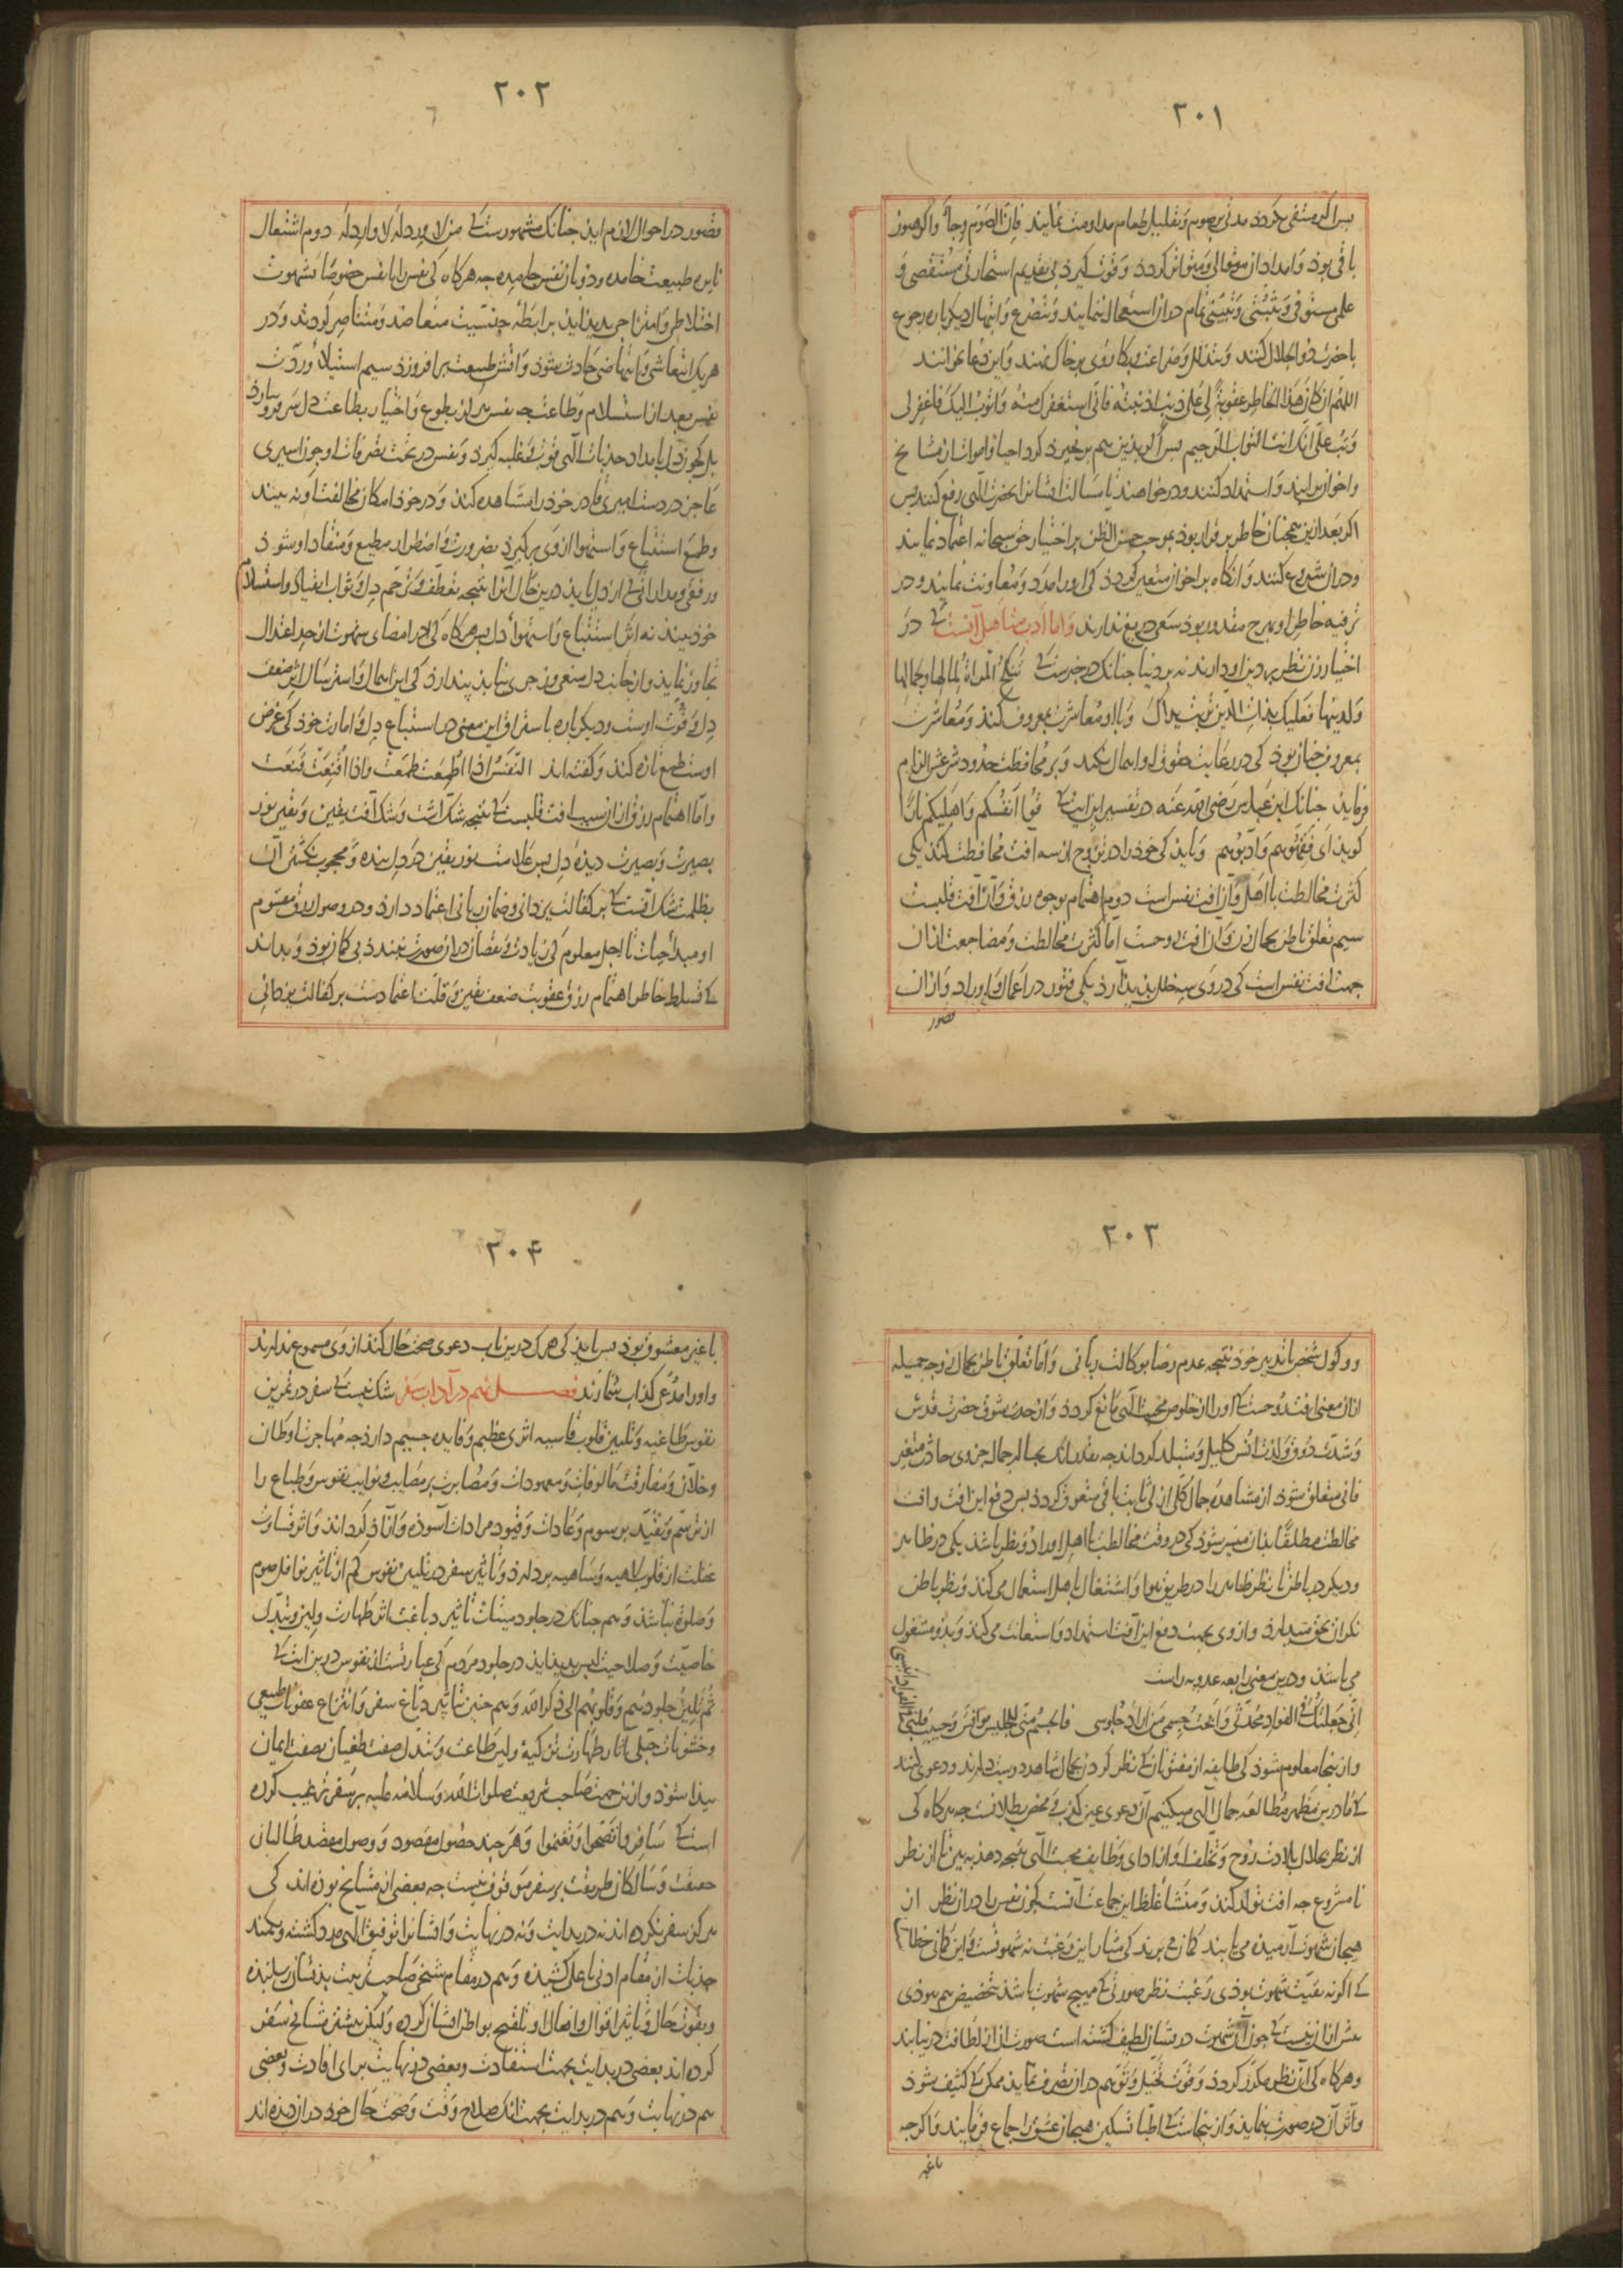 ۲۰۱
پس اکر منتفی نکردد مدتی بر صوم و تقلیل طعام مداومت نمایند فان الصوم وجاء و اکر هنوز
باقی بود و امداد آن متوالی و متواتر کردد و قوت کیرد بی تقدیم استخارتی مستقصی و
علمی مستوفی و تثبتی تمام در آن استعجال ننمایند و بتضرع و ابتهال دیکرباره رجوع
با حضرت ذوالجلال کنند و بتذلل و ضراعت و بکا روی بر خاک نهند و این دعا بخوانند
اللهم ان کان هذا الخاطر عقوبة لی علی ذنب اذنبته فانی استغفرک منه و اتوب الیک فاغفر لی
و تب علی انک انت التواب الرحیم پس اکر بدین هم بر نخیزد کرد احیا و اموات از مشایخ
و اخوان برآیند و استمداد کنند و درخواهند تا مسالت ایشان از حضرت الهی رفع کنند پس
اکر بعد ازین همچنان خاطر بر قرار بود بموجب حسن الظن بر اختیار حق سبحانه اعتماد نمایند
و در آن شروع کنند و آنکاه بر اخوان متعین کردد کی او را مدد و معاونت نمایند و در
ترفیه خاطر او بهرچ مقدور بود سعی دریغ ندارند و اما ادب متاهل آنست که در
اختیار زن نظر بر دین او دارند نه بر دنیا چنانک در خبرست که تنکح المراة لمالها و جمالها
و لدینها فعلیک بذات الدین تربت یداک و با او معاشرت بمعروف کند و معاشرت
بمعروف چنان بود کی در رعایت حقوق او اهمال نکند و بر محافظت حدود شرعش الزام
فرماید چنانک ابن عباس رضی الله عنه در تفسیر این آیت که قوا انفسکم و اهلیکم نارا
کوید ای فقهوهم و ادبوهم و باید کی خود را در تزوج از سه آفت محافظت کند یکی
کثرت مخالطت با اهل و آن آفت نفس است دوم اهتمام بوجوه رزق و آن آفت قلبست
سیم تعلق باطن بجمال زن و آن آفت روحست اما کثرت مخالطت و مضاجعت از آن
جهت آفت نفس است کی در وی سه خلل پدید آرد یکی فتور در اعمال و اوراد و از آن
قصور
۲۰۲
قصور در احوال لازم آید چنانک مشهورست که من لا ورد له لا وارد له دوم اشتعال
نایره طبیعت خامده و ذوبان نفس جامده چه هرکاه کی نفس را با نفس خصوصا بشهوت
اختلاط و امتزاج پدید آید برابطه جنسیت متعاضد و متناصر کردند و در
هر یک انتعاشی و انتهاضی حادث شود و آتش طبیعت برافروزد سیم استیلا و ردت
نفس بعد از استسلام و طاعت چه نفس نه از بطوع و اختیار بطاعت دل سر فرو نیاورد
بلک چون دل بامداد جذبات الهی قوت و غلبه کیرد و نفس در تحت تصرفات او چون اسیری
عاجز در دست امیری قادر خود را مشاهده کند و در خود امکان مخالفت او نه بیند
و طمع استتباع و استهوا از وی برکیرد بضرورت و اضطرار مطیع و منقاد او شود
و رفقی و مداراتی که از دل یابد درین حال آنرا نتیجه تعطف و ترحم دل و ثواب انقیاد و استسلام
خود بیند نه اثر استتباع و استهواء دل پس هرکاه کی او در امضای شهوت از حد اعتدال
تجاوز نماید و از جانب دل منعی و زجری نیابد پندارد کی این اهمال و استرسال اثر ضعف
دل و قوت اوست و دیکرباره باستراق این معنی در استتباع دل و امارت خود کی غرض
اوست طمع تازه کند و کفته اند النفس اذا اطمعت طمعت و اذا اقنعت قنعت
و اما اهتمام رزق از آن سبب آفت قلبست که نتیجه شک است و شک آفت یقین و یقین نور
بصیرت و بصیرت دیده دل پس علامت نور یقین در دل بنده و محجوب نکشتن آن
بظلمت شک آنست که بر کفالت یزدانی و ضمان ربانی اعتماد دارد و در وصول رزق مقسوم
او مبدأ حیات تا اجل معلوم کی زیادت و نقصان در آن صورت نبندد بی کمان بود و بداند
که تسلط خاطر اهتمام رزق عقوبت ضعف یقین و قلت اعتمادست بر کفالت یزدانی
۲۰۳
و وکول شخص با تدبیر خود نتیجه عدم رضا بوکالت ربانی و اما تعلق باطن بجمال زوجه جمیله
از آن معنی آفت روحست که او را از خلوص محبت الهی مانع کردد و از حدت شوق حضرت قدس
و شدت ذوق و لذت انس کلیل و متبلد کرداند چه بقدر آنک بجمال رجال جزوی حادث متغیر
فانی متعلق شود از مشاهده جمال کلی ازلی ثابت باقی متعوق کردد پس دفع این آفت و آفت
مخالطت مطلقا بدان میسر شود کی در وقت مخالطت با اهل او را دو نظر باشد یکی در ظاهر
و دیکر در باطن تا نظر ظاهر را در طریق هوا و اشتغال باهل استعمال می کند و نظر باطن
نکران بحق می دارد و از وی بجهت دفع این آفت استمداد و استعانت می کند و بدو مشغول
می باشد و درین معنی رابعه عدویه راست
انی جعلتک فی الفواد محدثی و ابحت جسمی من اراد جلوسی فالجسم منی للجلیس موانس و حبیب قلبی
فی الفواد انیسی
و از ینجا معلوم شود کی طایفه از مفتونان که نظر کردن بجمال شاهد دوست دارند و دعوی کنند
که ما درین مظهر مطالعه جمال الهی میکنیم آن دعوی عین کذب و محض بطلانست چه هرکاه کی
از نظر بحلال بلادت روح و تخلف او از ادای وظایف محبت الهی نتیجه دهد ببین تا از نظر
نامشروع چه آفت تولد کند و منشأ غلط این جماعت آنست که چون نفس را در آن نظر از
هیجان شهوت آرمیده می یابند کمان می برند کی مثار این رغبت نه شهوتست و این کمانی خطا
که اکر نه بقیت شهوت بودی رغبت نظر صورتی که مهیج شهوت باشد تخصیص هم نبودی
بیش از آن نیست که چون آن شهوت در نشان لطیف کشته است صورت آن از لطافت در نیابند
و هرکاه کی آن نظر مکرر کردد و قوت تخیل و توهم در آن تصرف نماید ممکن که کثیف شود
و اثر آن در صورت بنماید و از ینجاست که اطبا تسکین هیجان عشق را جماع فرمایند و اکرچه
با غیر
۲۰۴
با غیر معشوق بود پس باید کی هرک درین باب دعوی صحت حال کند از وی مسموع ندارند
و او را مدعی کذاب شمارند فصل نهم در آداب سفر شک نیست که سفر در تمرین
نفوس طاغیه و تلیین قلوب قاسیه اثری عظیم و فایده جسیم دارد چه مهاجرت اوطان
و خلان و مفارقت مالوفات و معهودات و مصابرت بر مصایب و نوایب نفوس و طباع را
از ترسم و تقید برسوم و عادات و قیود مرادات آسوده و آزاد کرداند و اثر قساوت
غفلت از قلوب لاهیه و ساهیه بردارد و تأثیر سفر در تلیین نفوس کم از تأثیر نوافل صوم
و صلوة نباشد و هم چنانک در جلود میتات تاثیر دباغت اثر طهارت و لین و تبدل
خاصیت و صلاحیت لبس پدید آید در جلود مردم کی عبارتست از نفوس درین آیت که
ثم تلین جلودهم و قلوبهم الی ذکر الله و هم چنین تأثیر دباغ سفر و انتزاع عفونات طبیعی
و خشونات جبلی آثار طهارت تزکیه و لین طاعت و تبدل صفت طغیان بصفت ایمان
پیدا شود و از ین جهت صاحب شریعت صلوات الله و سلامه علیه بر سفر ترغیب کرده
است که سافروا تصحوا و تغنموا و هر چند حصول مقصود و وصول مقصد طالبان
حقیقت و سالکان طریقت بر سفر موقوف نیست چه بعضی از مشایخ بوده اند کی
هرکز سفر نکرده اند نه در بدایت و نه در نهایت و ایشان را توفیق الهی مدد کشته و بکمند
جذبات از مقام ادنی باعلی کشیده و هم در مقام شیخی صاحب تربیت بدیشان رسانیده
و بقوت حال و تأثیر اقوال و افعال او تلقیح بواطن ایشان کرده و لیکن بیشتر مشایخ سفر
کرده اند بعضی در بدایت بجهت استفادت و بعضی در نهایت برای افادت و بعضی
هم در نهایت و هم در بدایت بجهت آنک صلاح وقت و صحت حال خود در آن دیده اند